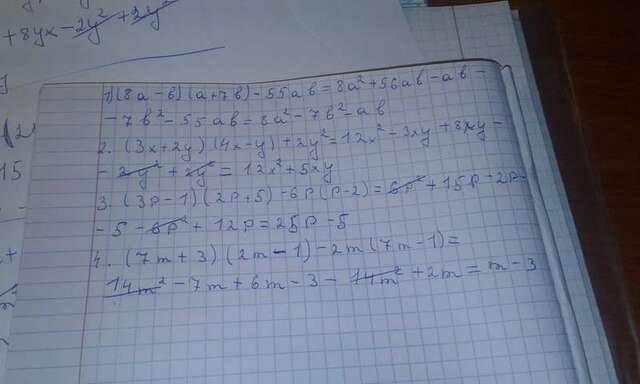 + 8yx - 2y² + 2y²
1) (8a - b) (a + 7b) - 55ab = 8a² + 56ab - ab -
- 7b² - 55ab = 8a² - 7b² - ab
2. (3x + 2y) (4x - y) + 2y² = 12x² - 3xy + 8xy -
- 2y² + 2y² = 12x² + 5xy
3. (3p - 1) (2p + 5) - 6p (p - 2) = 6p² + 15p - 2p -
- 5 - 6p² + 12p = 25p - 5
4. (7m + 3) (2m - 1) - 2m (7m - 1) =
14m² - 7m + 6m - 3 - 14m² + 2m = m - 3
15